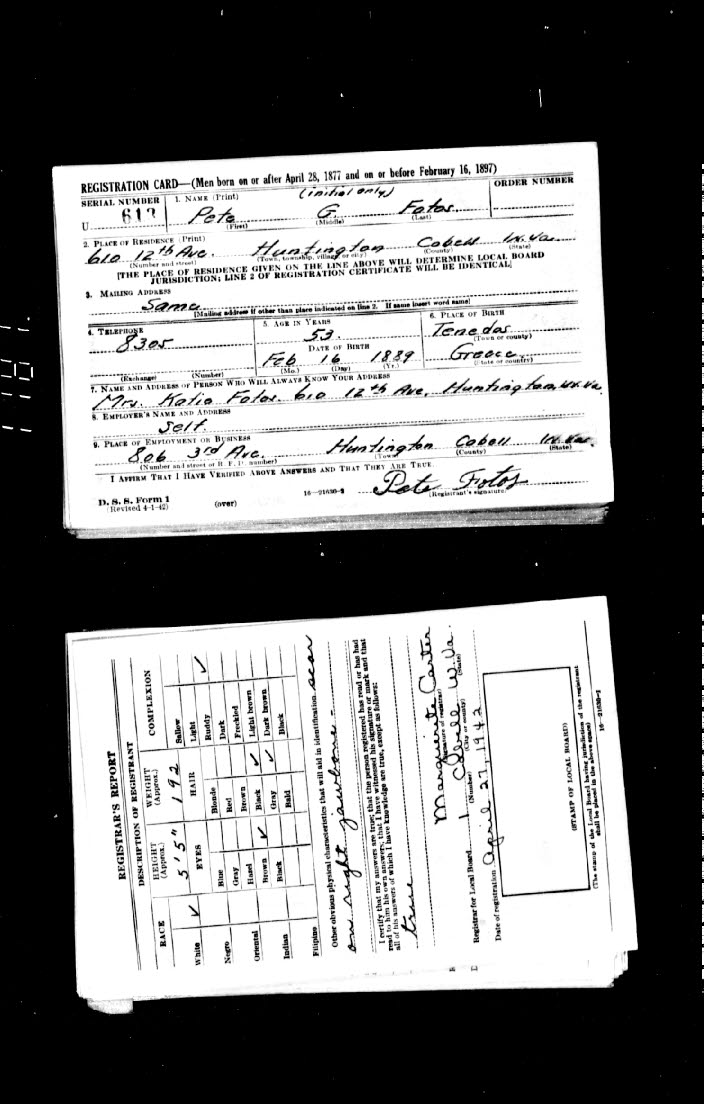 REGISTRATION CARD—(Men born on or after April 28, 1877 and on or before February 16, 1897)
SERIAL NUMBER 1. NAME (Print) (initial only) ORDER NUMBER
U 617 Pete G. Fotos
(First) (Middle) (Last)
2. PLACE OF RESIDENCE (Print)
610 12th Ave. Huntington Cabell W. Va.
(Number and street) (Town, township, village, or city) (County) (State)
[THE PLACE OF RESIDENCE GIVEN ON THE LINE ABOVE WILL DETERMINE LOCAL BOARD
JURISDICTION; LINE 2 OF REGISTRATION CERTIFICATE WILL BE IDENTICAL]
3. MAILING ADDRESS
Same
[Mailing address if other than place indicated on line 2. If same insert word same]
4. TELEPHONE 5. AGE IN YEARS 6. PLACE OF BIRTH
8305 53. Tenedos
DATE OF BIRTH (Town or county)
Feb 16 1889 Greece
(Exchange) (Number) (Mo.) (Day) (Yr.) (State or country)
7. NAME AND ADDRESS OF PERSON WHO WILL ALWAYS KNOW YOUR ADDRESS
Mrs. Katie Fotos 610 12th Ave, Huntington, W. Va.
8. EMPLOYER'S NAME AND ADDRESS
Self.
9. PLACE OF EMPLOYMENT OR BUSINESS
806 3rd Ave. Huntington Cabell W. Va.
(Number and street or R. F. D. number) (Town) (County) (State)
I AFFIRM THAT I HAVE VERIFIED ABOVE ANSWERS AND THAT THEY ARE TRUE.
Pete Fotos
D. S. S. Form 1 16—21630-2 (Registrant's signature)
(Revised 4-1-42) (over)
REGISTRAR'S REPORT
DESCRIPTION OF REGISTRANT
RACE HEIGHT (Approx.) WEIGHT (Approx.) COMPLEXION
5' 5" 192 Sallow
White ✓ EYES HAIR Light ✓
Ruddy
Blue Blonde Dark
Negro Gray Red Freckled
Hazel Brown Light brown
Oriental Brown ✓ Black ✓ Dark brown
Indian Black Gray ✓ Black
Bald
Filipino
Other obvious physical characteristics that will aid in identification scar
on right jawbone -
I certify that my answers are true; that the person registered has read or has had
read to him his own answers; that I have witnessed his signature or mark and that
all of his answers of which I have knowledge are true, except as follows:
true
Marguerite Carter
(Signature of registrar)
Registrar for Local Board 1 Cabell W. Va.
(Number) (City or county) (State)
Date of registration April 27, 1942
(STAMP OF LOCAL BOARD)
(The stamp of the Local Board having jurisdiction of the registrant
shall be placed in the above space)
16—21630-2